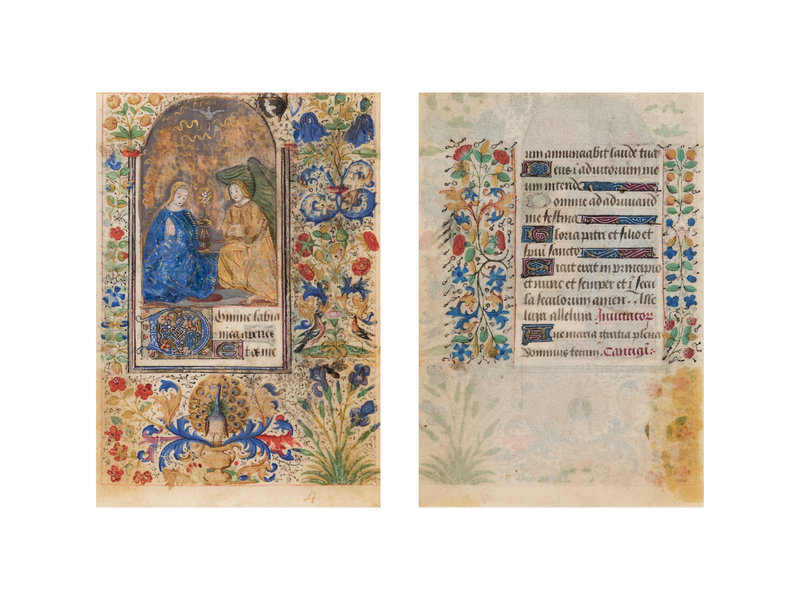 Domine labia
mea aperies
Et os me
4
um annunciabit laude tuā
Deus i adiutorium me
um intende
Domine ad adiuuand
me festina
Gloria patri et filio et
spui sancto
Sicut erat in principio
et nunc et semper et ī secu
la seculorum amen
luya alleluya Inuitator
Aue maria gratia plena
dominus tecum Cantiqz